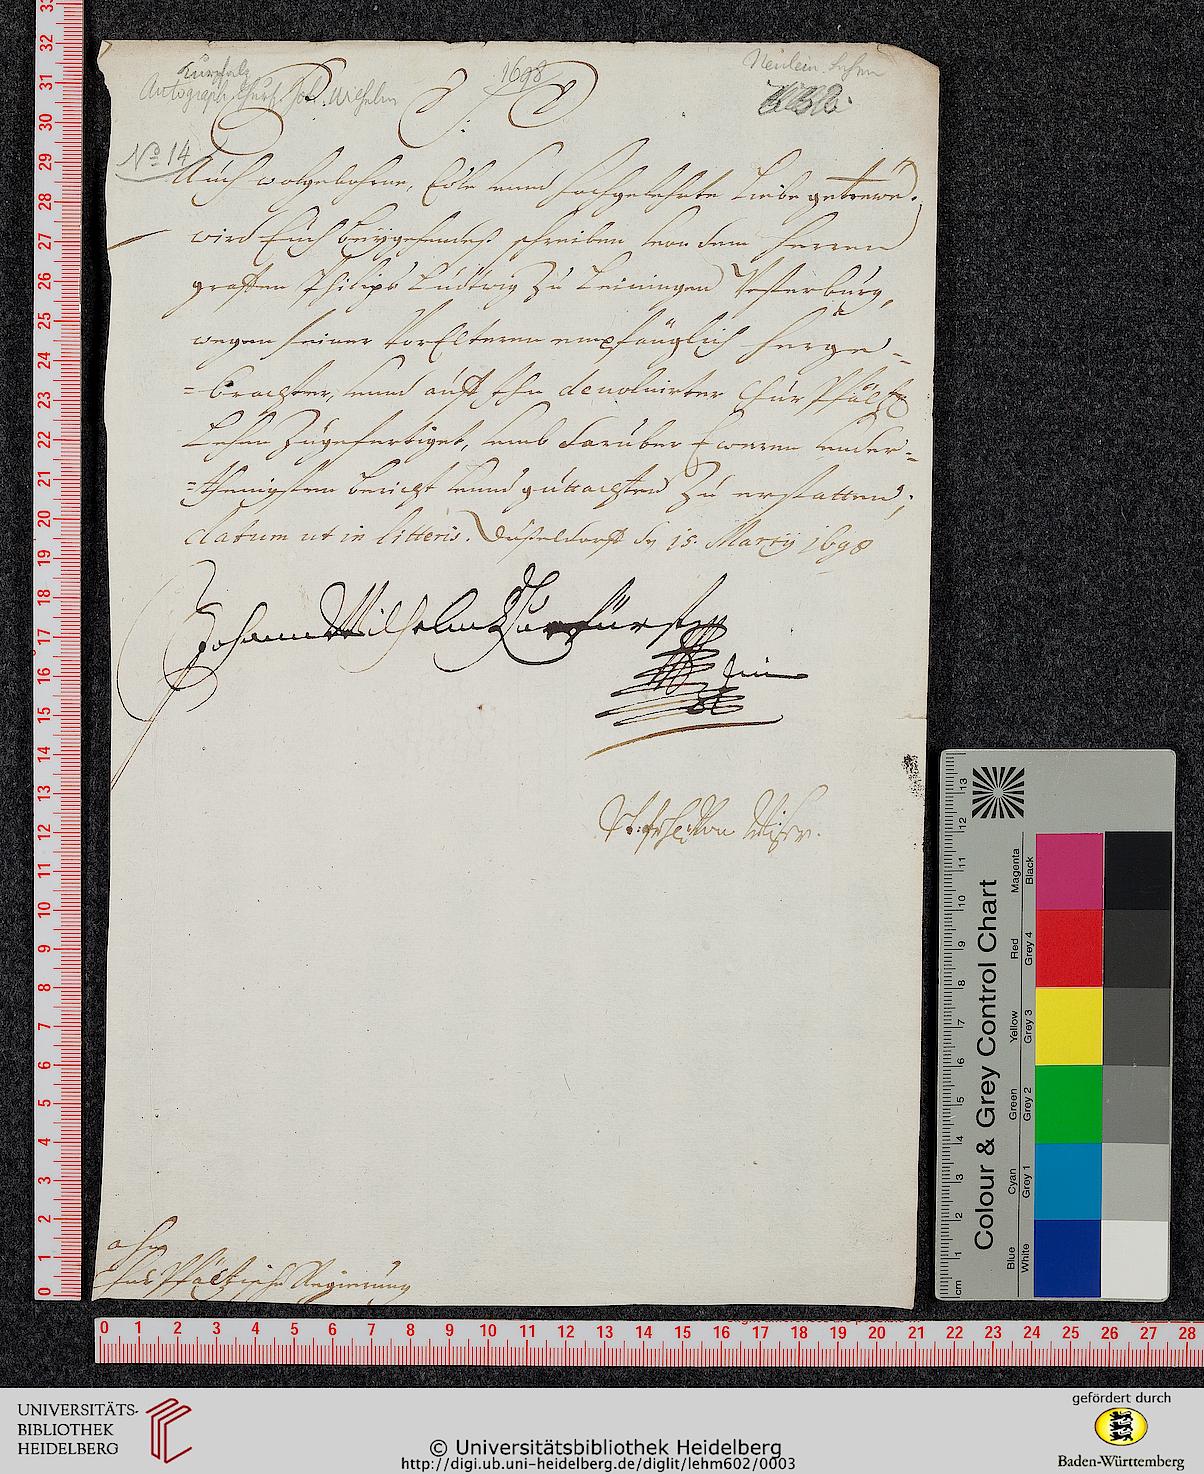 Kurpfalz
Autograph. Churf. Joh. Wilhelm
1698
Neulein. Lehen
No 14
Auch wolgebohrne, Edle unnd hochgelehrte Liebe getrewe.
wird Euch beygehendeß schreiben von dem Herren
graffen Philips Ludtwig zu Leiningen Westerburg,
wegen seiner VorElteren empfänglich herge-
=brachter, unnd auff Ihn devoluirter ChurPfältz
Lehen zugefertiget, umb darüber Eweren under-
=thenigsten bericht unnd guttachten zu erstatten;
datum ut in litteris. Düsseldorff d 15. Martij 1698
Johann Wilhelm Churfürst
ahn
ChurPfältzische Regierung
UNIVERSITÄTS-
BIBLIOTHEK
HEIDELBERG
© Universitätsbibliothek Heidelberg
http://digi.ub.uni-heidelberg.de/diglit/lehm602/0003
gefördert durch
Baden-Württemberg
Colour & Grey Control Chart
Blue
Cyan
Green
Yellow
Red
Magenta
White
Grey 1
Grey 2
Grey 3
Grey 4
Black
cm 1 2 3 4 5 6 7 8 9 10 11 12 13
0 1 2 3 4 5 6 7 8 9 10 11 12 13 14 15 16 17 18 19 20 21 22 23 24 25 26 27 28
0 1 2 3 4 5 6 7 8 9 10 11 12 13 14 15 16 17 18 19 20 21 22 23 24 25 26 27 28 29 30 31 32 33